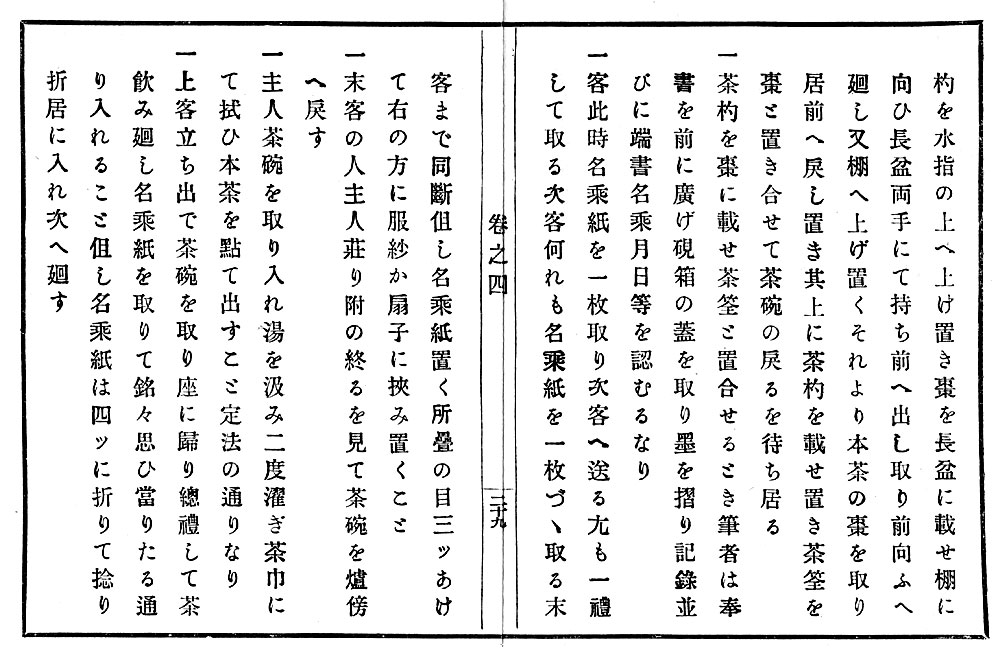 杓を水指の上へ上け置き棗を長盆に載せ棚に
向ひ長盆両手にて持ち前へ出し取り前向ふへ
廻し又棚へ上げ置くそれより本茶の棗を取り
居前へ戻し置き其上に茶杓を載せ置き茶筌を
棗と置き合せて茶碗の戻るを待ち居る
一茶杓を棗に載せ茶筌と置合せるとき筆者は奉
書を前に廣げ硯箱の蓋を取り墨を摺り記錄並
びに端書名乘月日等を認むるなり
一客此時名乘紙を一枚取り次客へ送る尤も一禮
して取る次客何れも名乘紙を一枚づゝ取る末
卷之四
二十九
客まで同斷但し名乘紙置く所疊の目三ッあけ
て右の方に服紗か扇子に挾み置くこと
一末客の人主人莊り附の終るを見て茶碗を爐傍
へ戻す
一主人茶碗を取り入れ湯を汲み二度濯ぎ茶巾に
て拭ひ本茶を點て出すこと定法の通りなり
一上客立ち出で茶碗を取り座に歸り總禮して茶
飮み廻し名乘紙を取りて銘々思ひ當りたる通
り入れること但し名乘紙は四ッに折りて捻り
折居に入れ次へ廻す